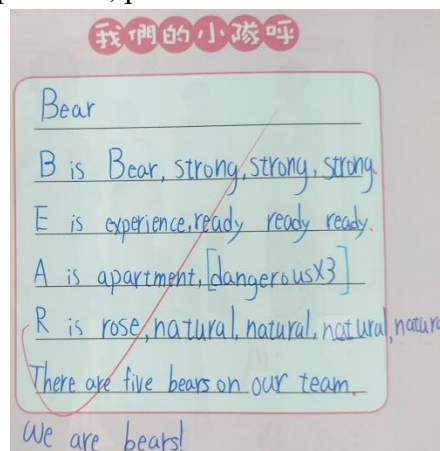 我們的小隊呼
Bear
B is Bear, strong, strong, strong.
E is experience, ready ready ready.
A is apartment, [dangerousX3]
R is rose, natural, natural, natural, natura
There are five bears on our team.
We are bears!